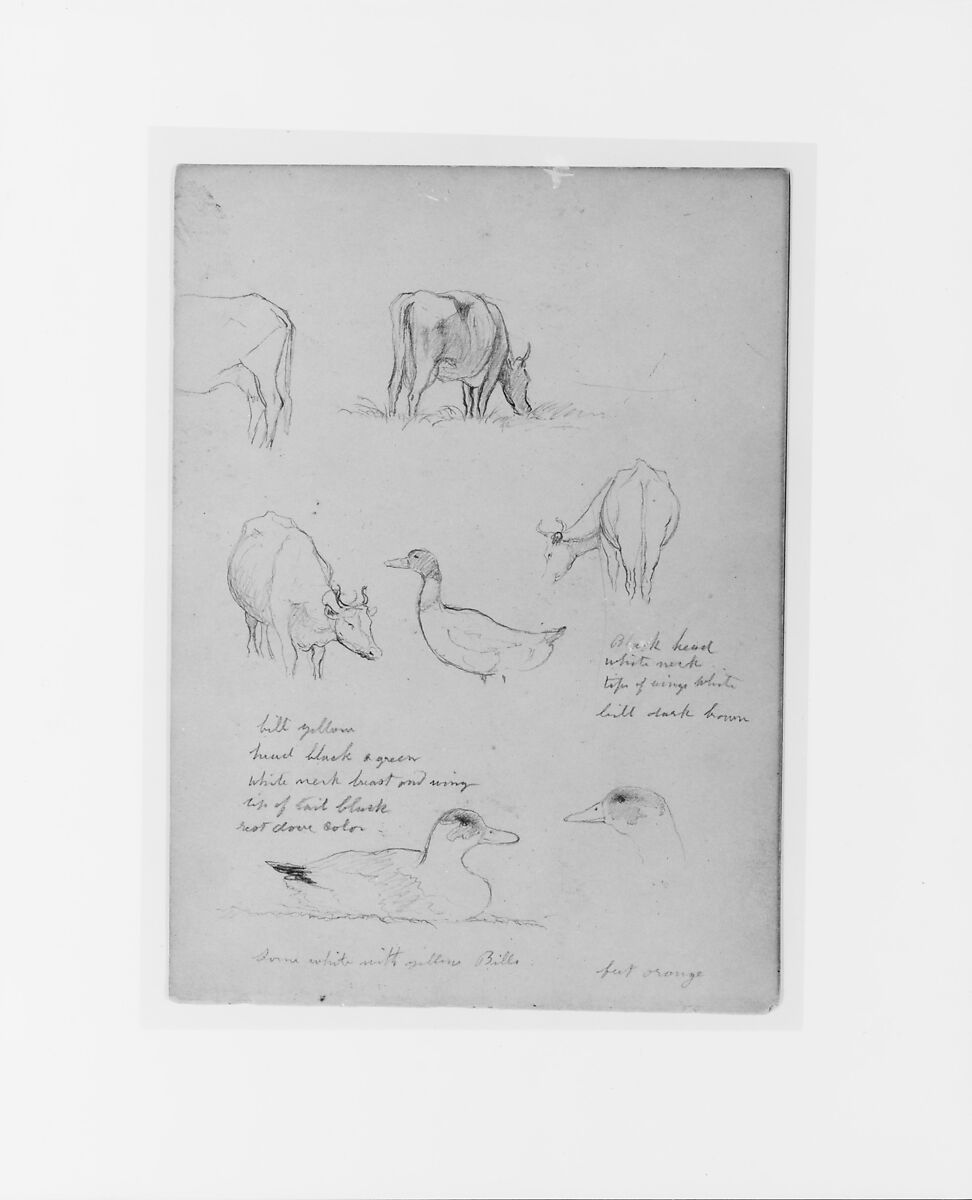 Black head
white neck
tops of wings white
bill dark brown
bill yellow
head black & green
white neck breast and wing
tip of tail black
rest dove color
Some white with yellow Bills
feet orange